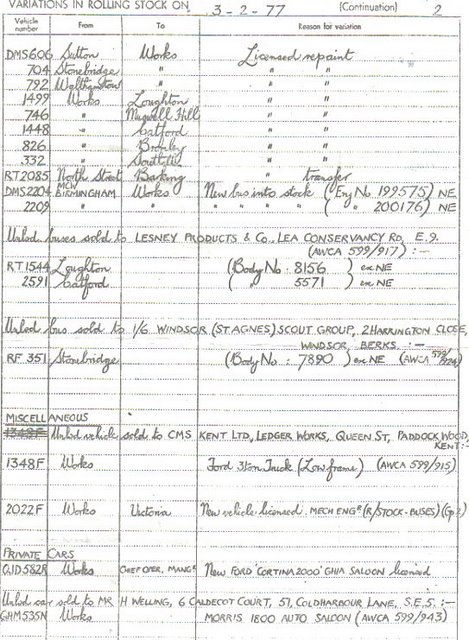 VARIATIONS IN ROLLING STOCK ON 3-2-77 (Continuation) 2
Vehicle number From To Reason for variation
DMS 606 Sutton Works Licensed repaint
704 Stonebridge " " "
792 Walthamstow " " "
1499 Works Loughton " "
746 " Muswell Hill " "
1448 " Catford " "
826 " Bromley " "
332 " Southall " "
RT 2085 North Street Barking " transfer
DMS 2204 MCW BIRMINGHAM Works New bus into stock (Eng No 199575) NE
2209 " " " " " " ( " 200176) NE
Unlcd buses sold to LESNEY PRODUCTS & Co., LEA CONSERVANCY RD, E.9.
(AWCA 599/917) :-
RT 1544 Loughton (Body No. 8156 ) ex NE
2591 Catford ( " 5571 ) ex NE
Unlcd bus sold to 1/6 WINDSOR (ST AGNES) SCOUT GROUP, 2 HARRINGTON CLOSE,
WINDSOR, BERKS. :-
RF 351 Stonebridge (Body No: 7890 ) ex NE (AWCA 599/924)
MISCELLANEOUS
1348F Unlcd vehicle sold to CMS KENT LTD, LEDGER WORKS, QUEEN ST, PADDOCK WOOD,
KENT:-
1348F Works Ford 3ton Truck (Low frame) (AWCA 599/915)
2022F Works Victoria New vehicle licensed MECH ENGR (R/STOCK-BUSES) (Gp 2)
PRIVATE CARS
OJD 582R Works CHIEF OPER. MANGR New FORD 'CORTINA 2000' GHIA SALOON licensed
Unlcd car sold to MR H WELLING, 6 CALDECOT COURT, 57, COLDHARBOUR LANE, S.E.5. :-
GHM 535N Works MORRIS 1800 AUTO SALOON (AWCA 599/943)